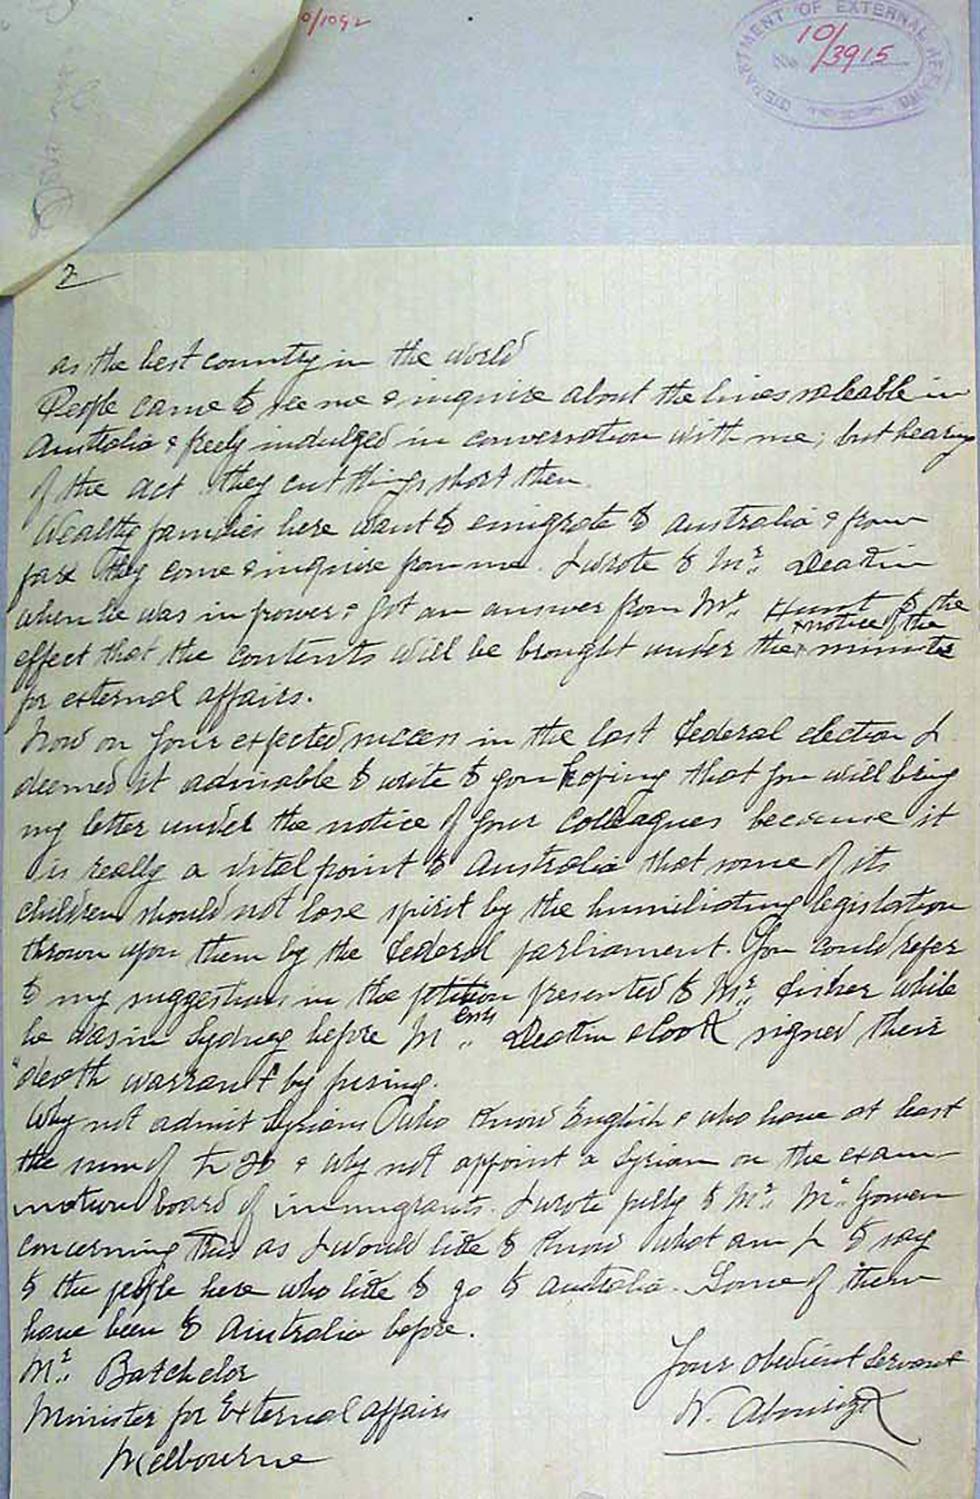 0/1092
DEPARTMENT OF EXTERNAL AFFAIRS
No. 10/3915
2
as the best country in the world
People came to see me & inquire about the lines saleable in
Australia & freely indulged in conversation with me; but hearing
of the act they cut things short then.
Wealthy families here want to emigrate to Australia & from
far they come & inquire from me. I wrote to Mr. Deakin
when he was in power & got an answer from Mr. Hunt to the
effect that the contents will be brought under the x minister
x notice of the
for external affairs.
Now on your expected success in the last federal election I
deemed it advisable to write to you hoping that you will bring
my letter under the notice of your colleagues because it
is really a vital point to Australia that some of its
children should not lose spirit by the humiliating legislation
thrown upon them by the federal parliament. You could refer
to my suggestions in the petition presented to Mr. Fisher while
he was in Sydney before Messrs. Deakin & Cook signed their
"death warrant by fusing.
Why not admit Syrians who know English & who have at least
the sum of £ 20 & why not appoint a Syrian on the exam-
ination board of immigrants. I wrote fully to Mr. McGowen
concerning this as I would like to know what am I to say
to the people here who like to go to Australia. Some of them
have been to Australia before.
Your obedient servant
Mr. Batchelor
W. Abourizk
Minister for External affairs
Melbourne